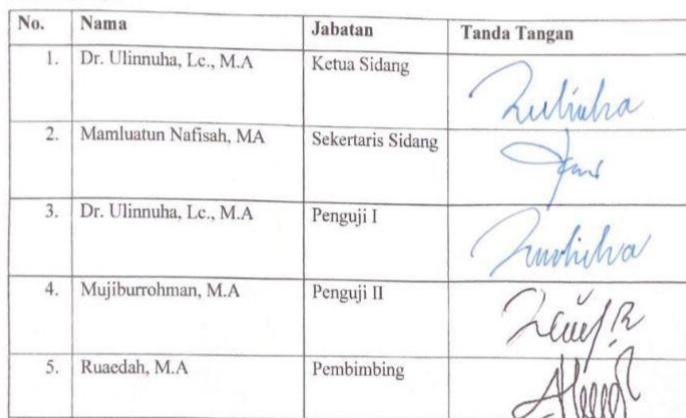 No. Nama Jabatan Tanda Tangan
1. Dr. Ulinnuha, Lc., M.A Ketua Sidang
2. Mamluatun Nafisah, MA Sekertaris Sidang
3. Dr. Ulinnuha, Lc., M.A Penguji I
4. Mujiburrohman, M.A Penguji II
5. Ruaedah, M.A Pembimbing